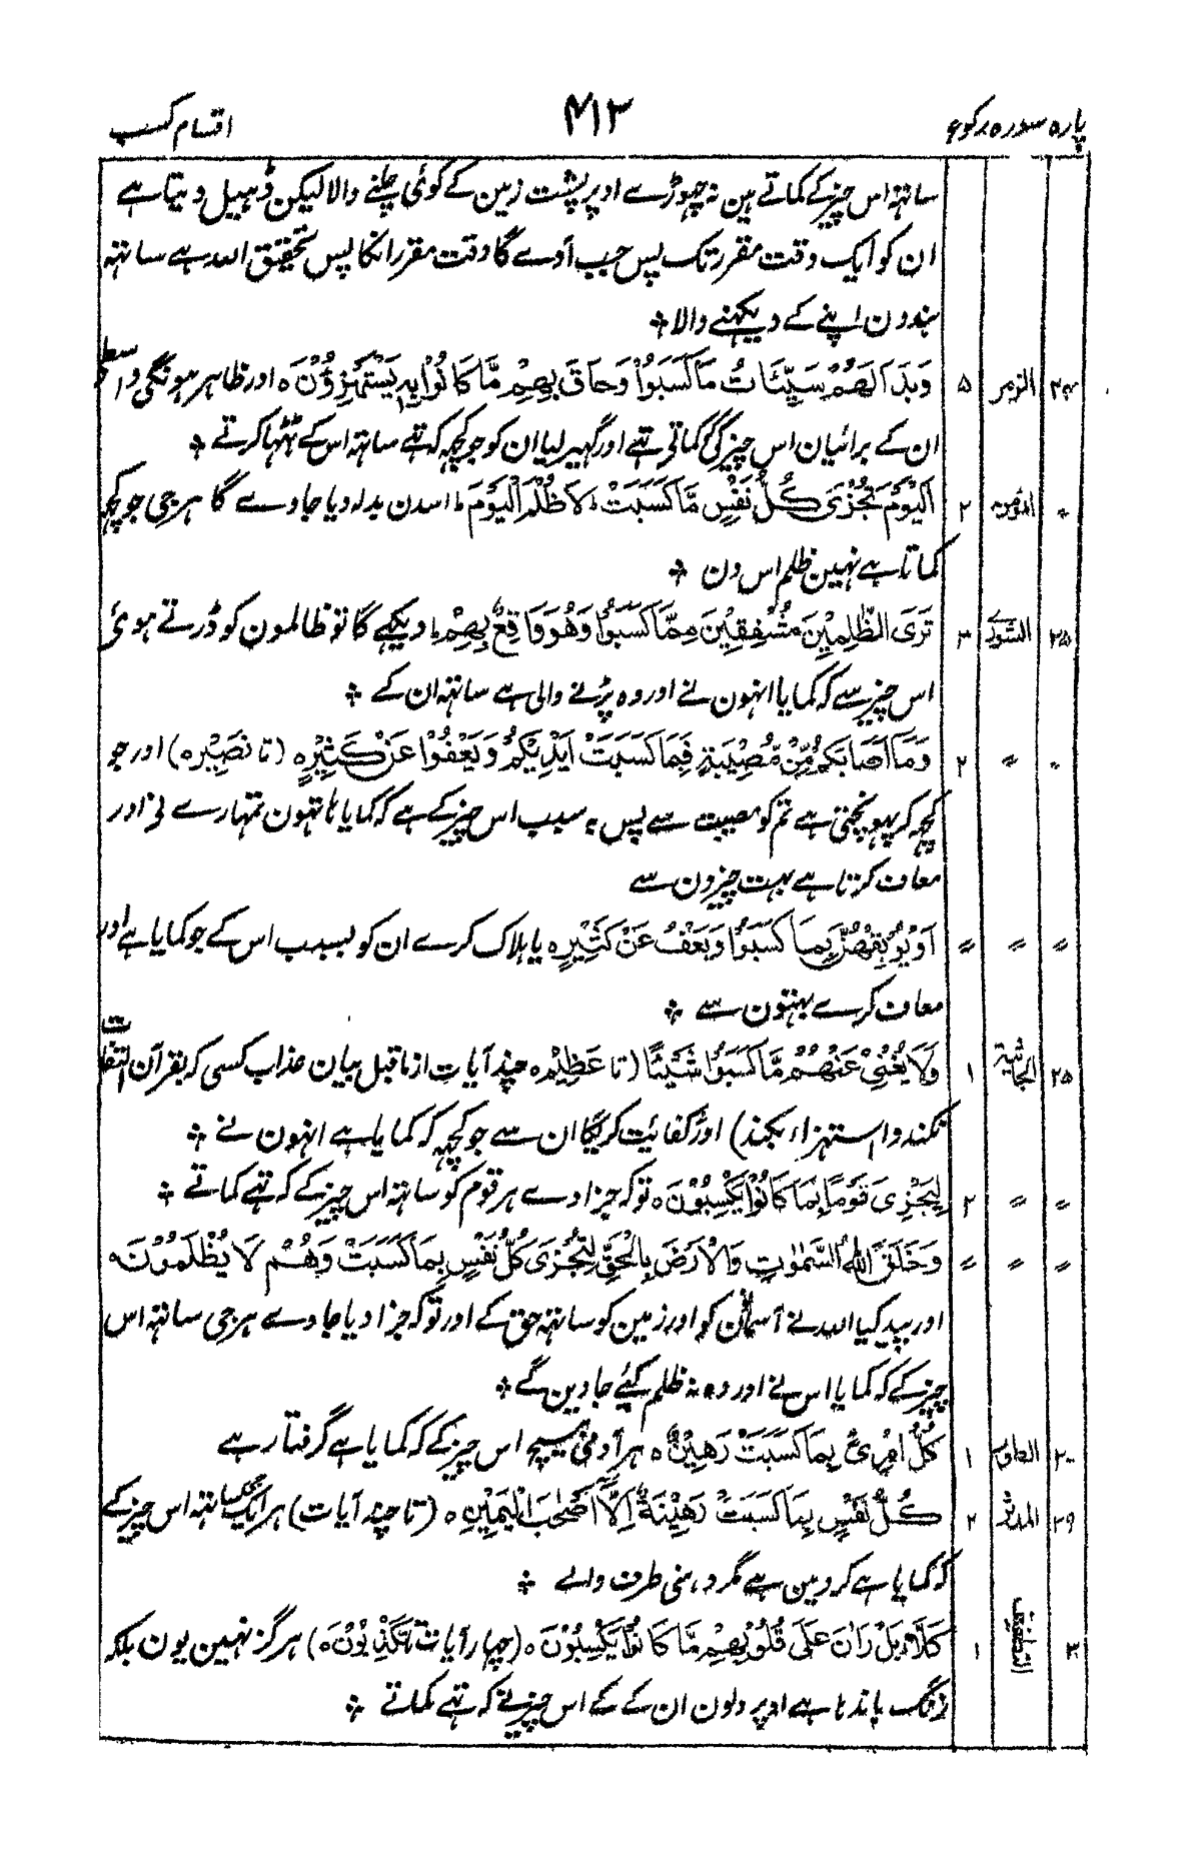 پارہ سورہ رکوع ۴۱۲ اقسام کسب
ساتھ اس چیز کے کماتے ہین نہ چہوڑے اوپر پشت زمین کے کوئی چلنے والا لیکن ڈہیل دیتا ہے
ان کو ایک وقت مقرر تک پس جب آوے گا وقت مقرر انکا پس تحقیق اللہ ہے ساتھ
بندون اپنے کے دیکھنے والا
۲۴ الزمر ۵ وَبَدَا لَهُمْ سَيِّئَاتُ مَا كَسَبُوْا وَحَاقَ بِهِمْ مَّا كَانُوْا بِهٖ يَسْتَهْزِؤُنَ ہ اور ظاہر ہونگی واسطے
ان کے برائیان اس چیز کی کماتی تہے اور گہیر لیا ان کو جو کچہہ کہ تہے ساتھ اس کے ٹھٹھا کرتے
〃 المومن ۲ اَلْيَوْمَ تُجْزٰى كُلُّ نَفْسٍ مَّا كَسَبَتْ ط لَا ظُلْمَ الْيَوْمَ ط اسدن بدلہ دیا جاوے گا ہر جی جو کچہہ
کماتا ہے نہین ظلم اس دن
۲۵ الشورے ۳ تَرَى الظّٰلِمِيْنَ مُشْفِقِيْنَ مِمَّا كَسَبُوْا وَهُوَ وَاقِعٌ بِهِمْ ط دیکھے گا تو ظالمون کو ڈرتے ہوئ
اس چیز سے کہ کمایا انہون نے اور وہ پڑنے والی ہے ساتھ ان کے
〃 〃 ۲ وَمَا اَصَابَكُمْ مِّنْ مُّصِيْبَةٍ فَبِمَا كَسَبَتْ اَيْدِيْكُمْ وَيَعْفُوْا عَنْ كَثِيْرٍ ہ (تا نَصِيْر ہ) اور جو
کچہہ کہ پہونچتی ہے تم کو مصیبت سے پس بہ سبب اس چیز کے ہے کہ کمایا ہاتہون تمہارے نے اور
معاف کرتا ہے بہت چیزون سے
〃 〃 〃 اَوْ يُوْبِقْهُنَّ بِمَا كَسَبُوْا وَيَعْفُ عَنْ كَثِيْرٍ ہ یا ہلاک کرے ان کو بسبب اس کے جو کمایا ہے اور
معاف کرے بہتون سے
۲۵ الجاثیۃ ۱ وَلَا يُغْنِيْ عَنْهُمْ مَّا كَسَبُوْا شَيْئًا (تا عَظِيْمٌ ہ چند آیات از ماقبل بیان عذاب کسی کہ بقرآن التفات
نکند و استہزاء بکند) اور کفائیت کریگا ان سے جو کچہہ کہ کمایا ہے انہون نے
〃 〃 ۲ لِيَجْزِىَ قَوْمًا بِمَا كَانُوْا يَكْسِبُوْنَ ہ تو کہ جزا دے ہر قوم کو ساتھ اس چیز کے کہ تہے کماتے
〃 〃 〃 وَخَلَقَ اللّٰهُ السَّمٰوٰتِ وَالْاَرْضَ بِالْحَقِّ لِتُجْزٰى كُلُّ نَفْسٍ بِمَا كَسَبَتْ وَهُمْ لَا يُظْلَمُوْنَ ہ
اور پیدا کیا اللہ نے آسمانون کو اور زمین کو ساتھ حق کے اور تو کہ جزا دیا جاوے ہر جی ساتھ اس
چیز کے کہ کمایا اس نے اور وہ نہ ظلم کیئے جاوین گے
۲۰ الطور ۱ كُلُّ امْرِئٍ بِمَا كَسَبَتْ رَهِيْنٌ ہ ہر آدمی بیچ اس چیز کے کہ کمایا ہے گرفتار ہے
۲۹ المدثر ۲ كُلُّ نَفْسٍ بِمَا كَسَبَتْ رَهِيْنَةٌ اِلَّا اَصْحٰبَ الْيَمِيْنِ ہ (تا چند آیات) ہر ایک ساتھ اس چیز کے
کہ کمایا ہے گروین ہے مگر داہنی طرف والے
۳۰ التطفیف ۱ كَلَّا بَلْ رَانَ عَلٰى قُلُوْبِهِمْ مَّا كَانُوْا يَكْسِبُوْنَ ہ (چہار آیات تُكَذِّبُوْنَ ہ) ہرگز نہین یون بلکہ
زنگ باندہا ہے اوپر دلون ان کے کے اس چیز نے کہ تہے کماتے